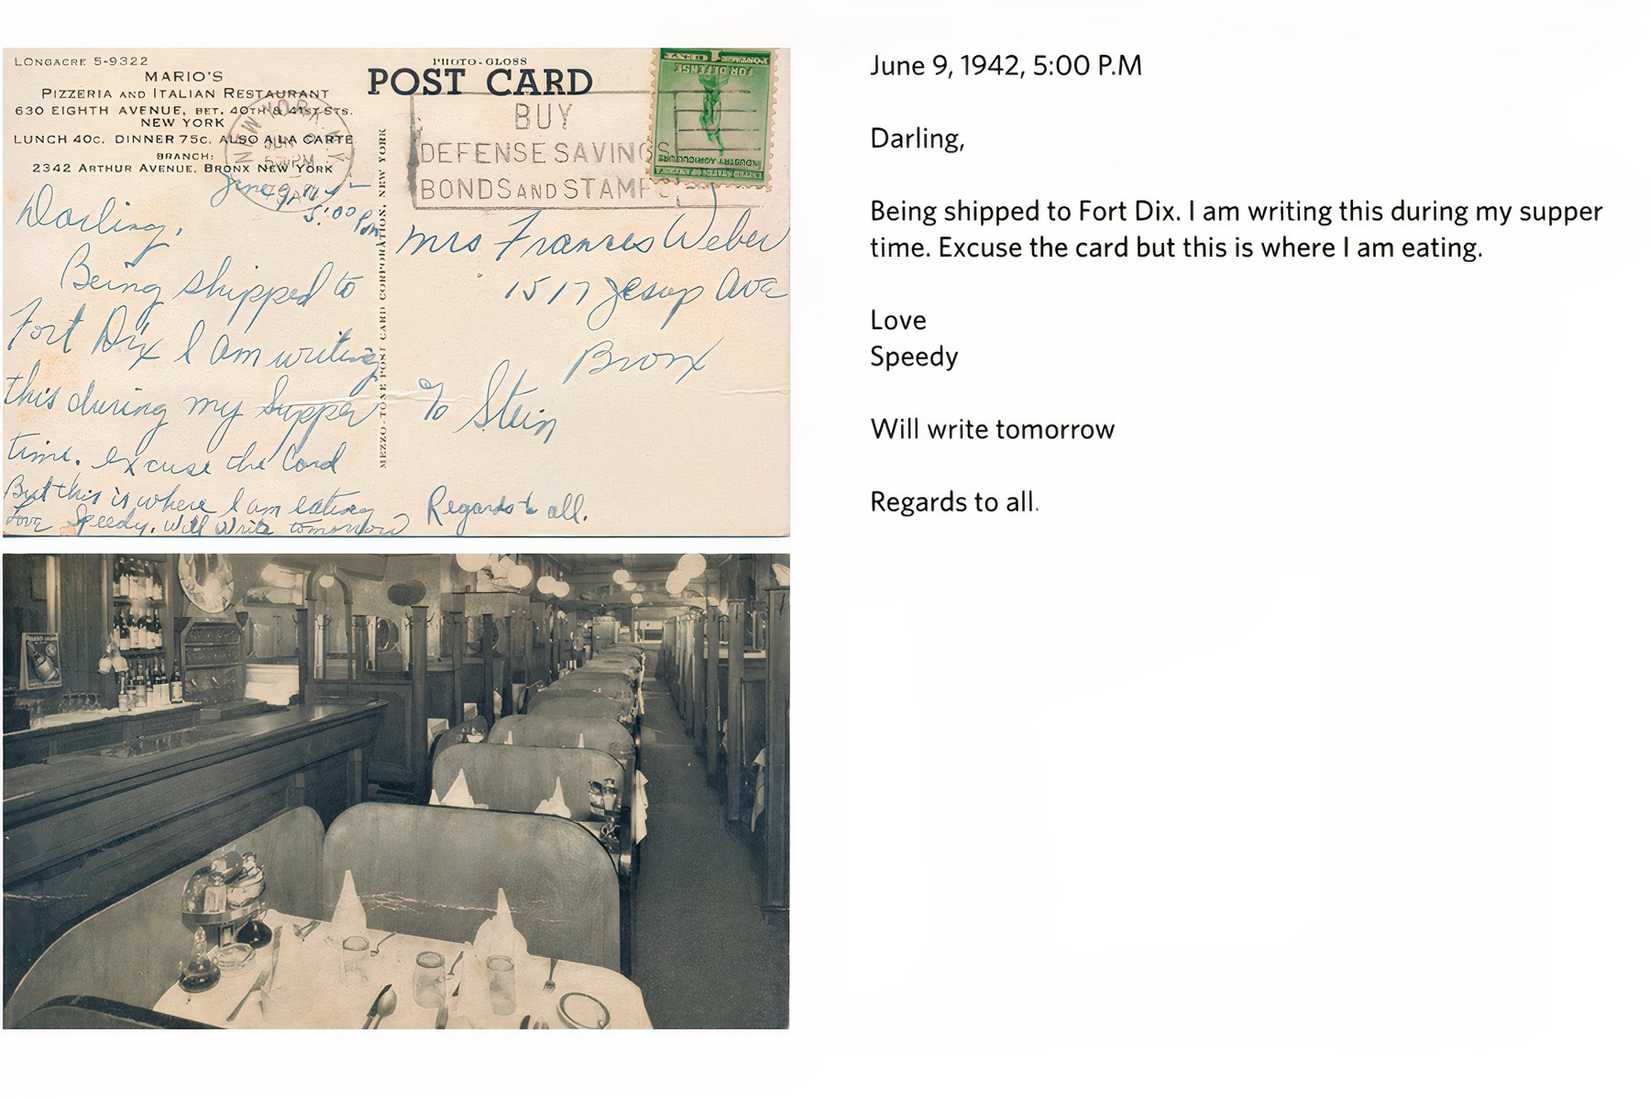 LONGACRE 5-9322
MARIO'S
PIZZERIA AND ITALIAN RESTAURANT
630 EIGHTH AVENUE, BET. 40TH & 41ST STS.
NEW YORK
LUNCH 40c. DINNER 75c. ALSO A LA CARTE
BRANCH:
2342 ARTHUR AVENUE, BRONX NEW YORK
PHOTO-GLOSS
POST CARD
NEW YORK, N.Y.
JUN 9
5 PM
BUY
DEFENSE SAVINGS
BONDS AND STAMPS
1 CENT
POSTAGE
FOR DEFENSE
INDUSTRY AGRICULTURE
UNITED STATES OF AMERICA
MEZZO-TONE POST CARD CORPORATION, NEW YORK
June 9,
5:00 Pm
Darling,
Being shipped to
Fort Dix I am writing
this during my supper
time. Excuse the Card
But this is where I am eating
Love Speedy. Will Write tomorrow
Mrs Frances Weber
1517 Jesup Ave
Bronx
Stein
Regards to all.
June 9, 1942, 5:00 P.M
Darling,
Being shipped to Fort Dix. I am writing this during my supper
time. Excuse the card but this is where I am eating.
Love
Speedy
Will write tomorrow
Regards to all.